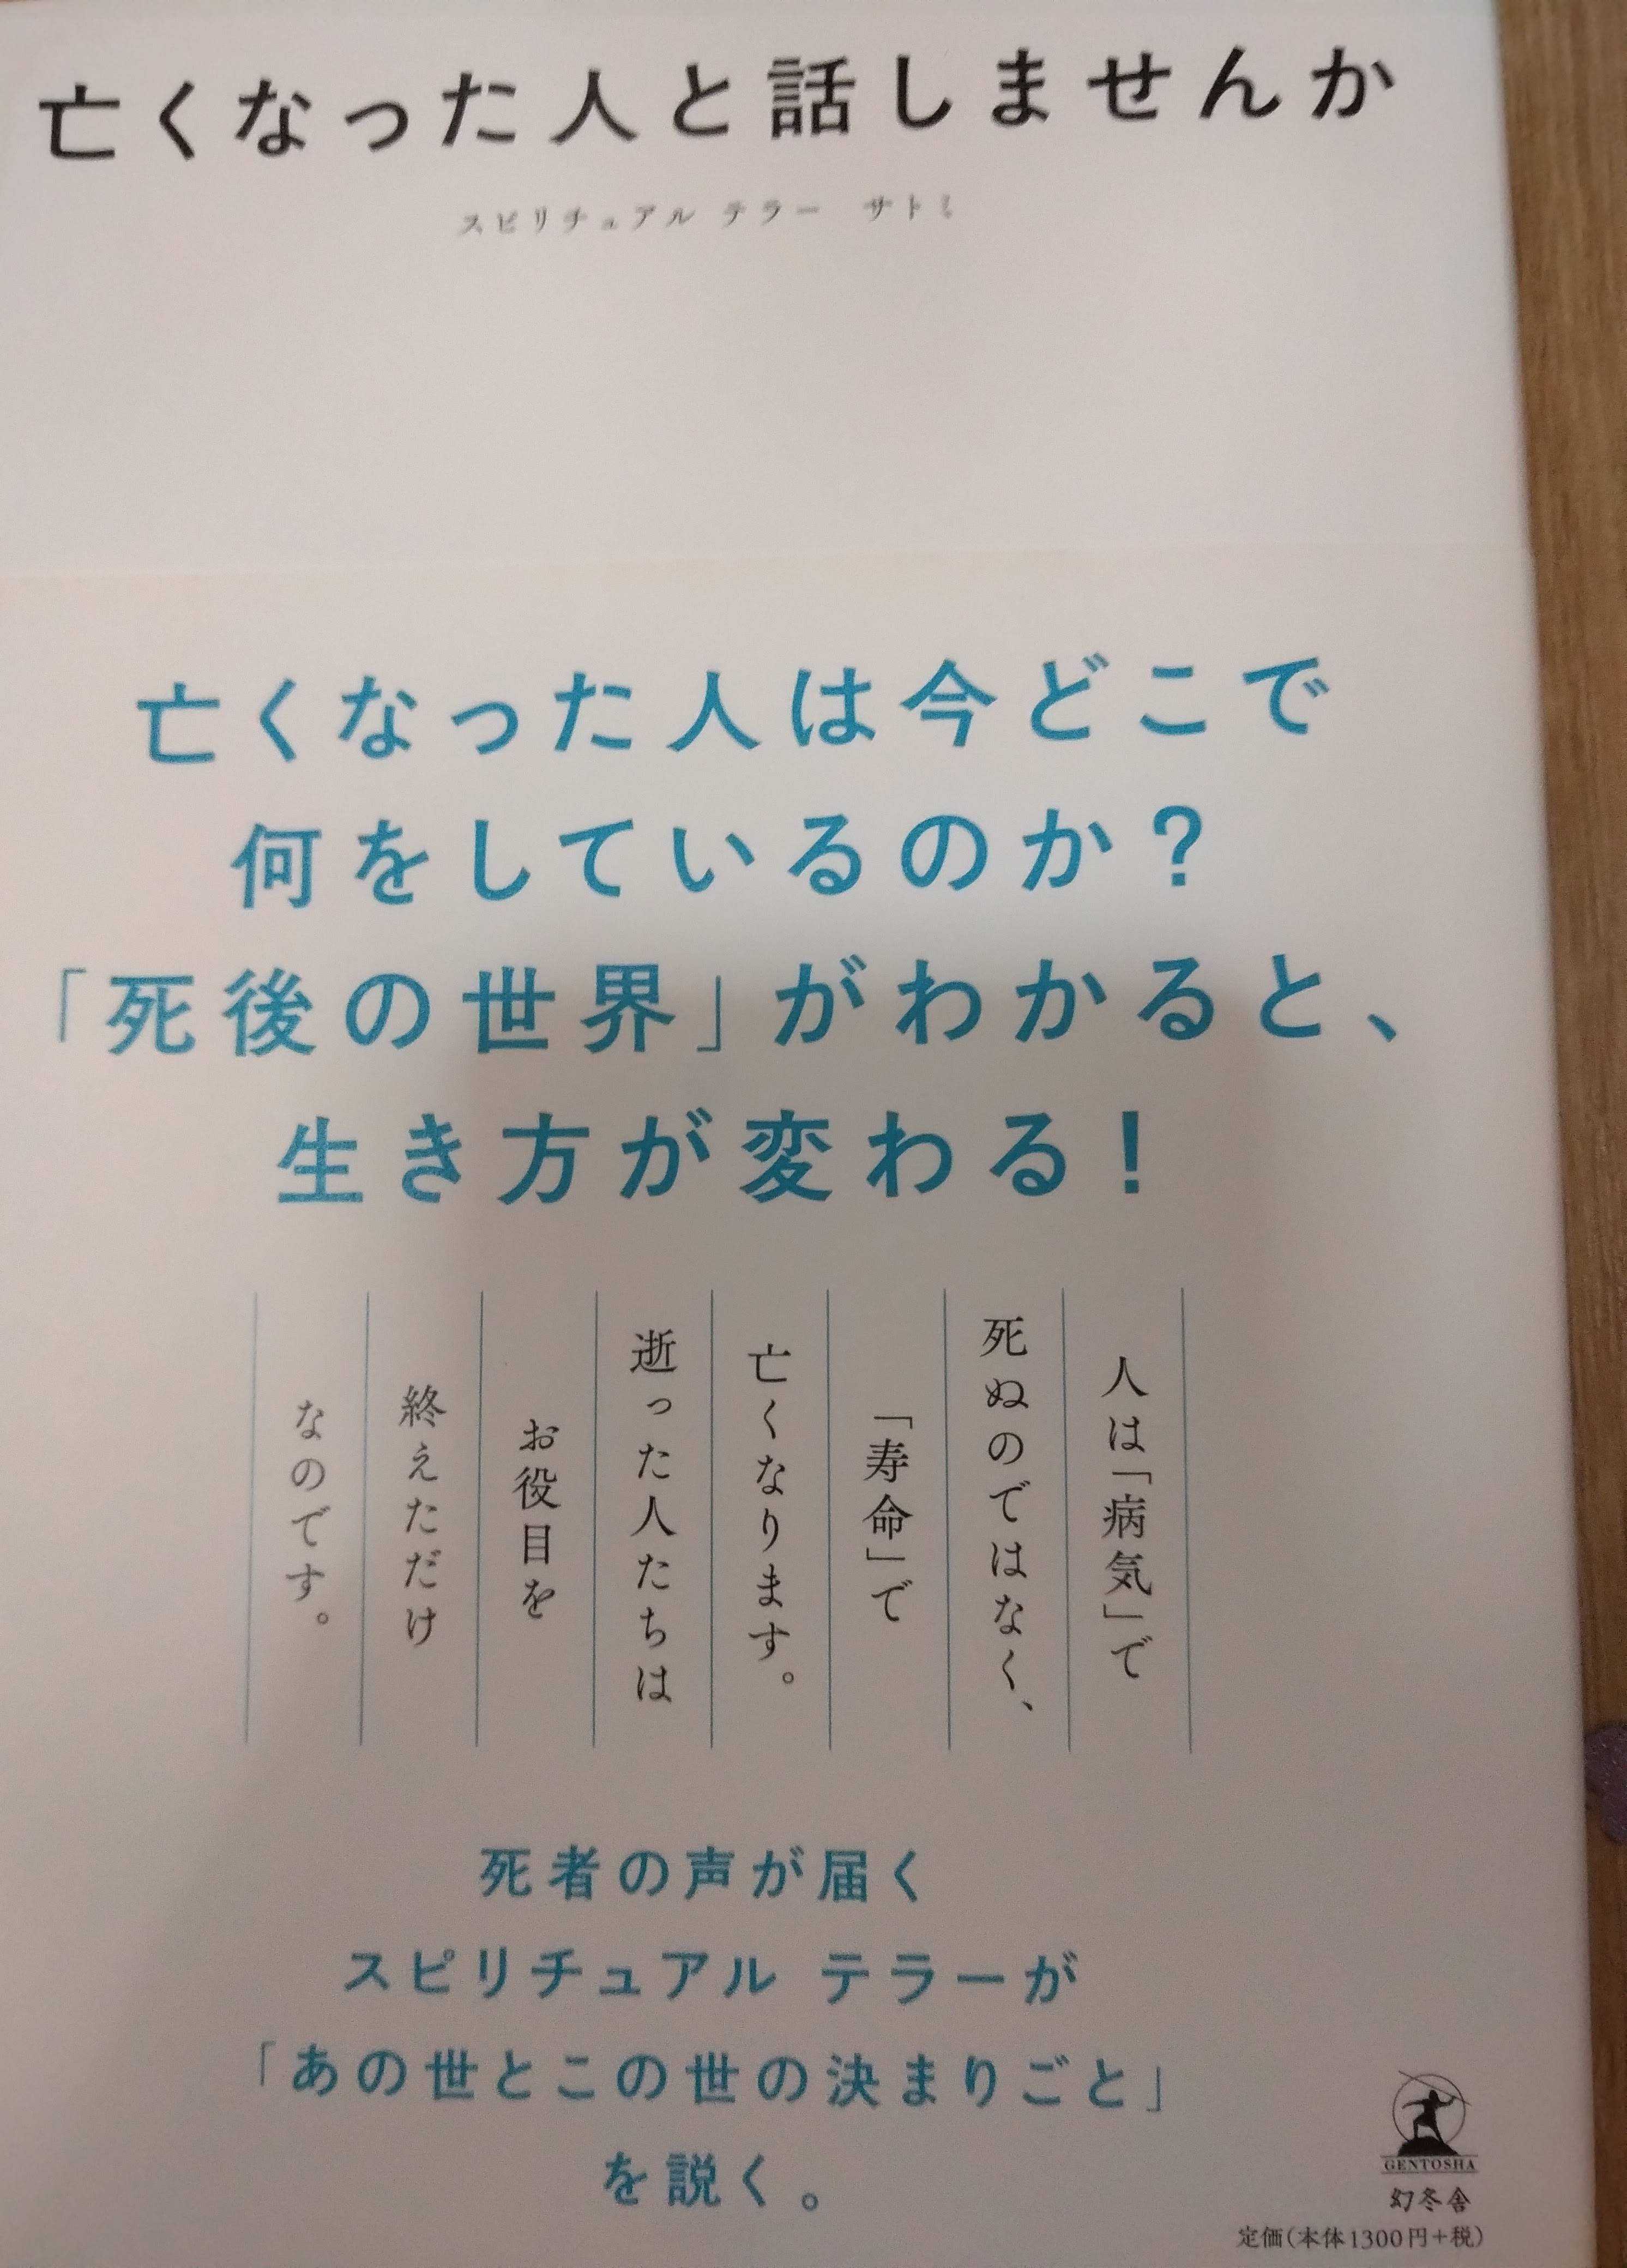 亡くなった人と話しませんか
スピリチュアル テラー サトミ
亡くなった人は今どこで
何をしているのか?
「死後の世界」がわかると、
生き方が変わる!
人は「病気」で
死ぬのではなく、
「寿命」で
亡くなります。
逝った人たちは
お役目を
終えただけ
なのです。
死者の声が届く
スピリチュアル テラーが
「あの世とこの世の決まりごと」
を説く。
GENTOSHA
幻冬舎
定価(本体1300円+税)